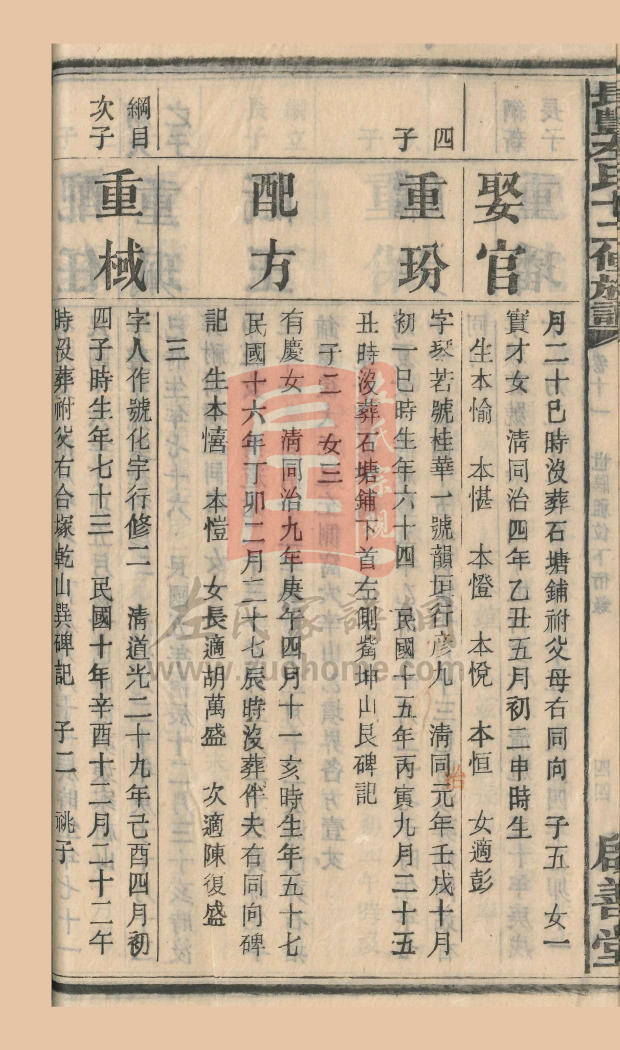 月二十巳時沒葬石塘鋪祔父母右同向 子五 女一
娶官
寶才女 清同治四年乙丑五月初二申時生
生本愉 本愖 本憕 本悅 本恒 女適彭
四
子
重玢
字琴若號桂華一號韻垣行彥九 清同元年壬戌十月
治
初一巳時生年六十四 民國十五年丙寅九月二十五
丑時沒葬石塘鋪下首左側嘴坤山艮碑記
子二 女三
配方
有慶女 清同治九年庚午四月十一亥時生年五十七
民國十六年丁卯二月二十七辰時沒葬件夫右同向碑
記 生本憘 本愷 女長適胡萬盛 次適陳復盛
三
綱目
次子
重棫
字人作號化宇行修二 清道光二十九年己酉四月初
四子時生年七十三 民國十年辛酉十二月二十二午
時沒葬祔父右合塚乾山巽碑記 子二 祧子
卷十一
四四
啟善堂
左氏家譜網
www.zuohome.com